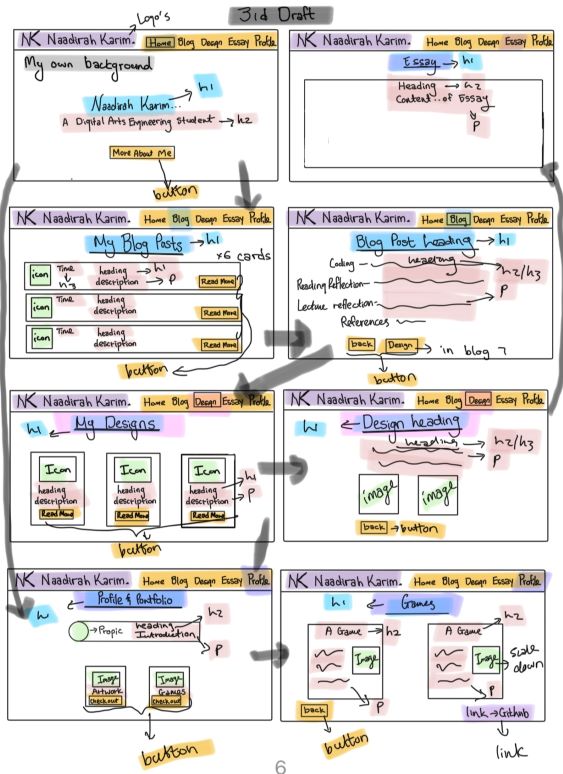 3rd Draft
Logo's
NK Naadirah Karim. Home Blog Design Essay Profile
My own background
Naadirah Karim... h1
A Digital Arts Engineering Student h2
More About Me
button
NK Naadirah Karim. Home Blog Design Essay Profile
Essay h1
Heading h2
Content... of Essay
P
NK Naadirah Karim. Home Blog Design Essay Profile
My Blog Posts h1
x6 cards
icon Time h3 heading h1
description P Read More
icon Time heading
description Read More
icon Time heading
description Read More
button
NK Naadirah Karim. Home Blog Design Essay Profile
Blog Post heading h1
Coding heading h2/h3
Reading Reflection
P
Lecture reflection
References
back Design in blog 7
button
NK Naadirah Karim. Home Blog Design Essay Profile
h1 My Designs
Icon Icon Icon
heading heading heading h1
description description description P
Read More Read More Read More
button
NK Naadirah Karim. Home Blog Design Essay Profile
h1 Design heading
heading h2/h3
P
image image
back button
NK Naadirah Karim. Home Blog Design Essay Profile
h1 Profile & Portfolio
h2
Propic heading
Introduction
P
Image Image
Artwork Games
checkout checkout
button
NK Naadirah Karim. Home Blog Design Essay Profile
h1 Games
h2
A Game h2 A Game
Image Image Scale down
P P
back link Github
button link
6